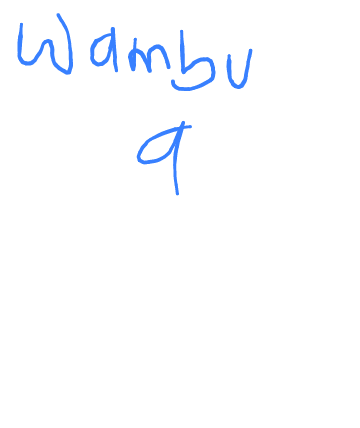 Wambu
9